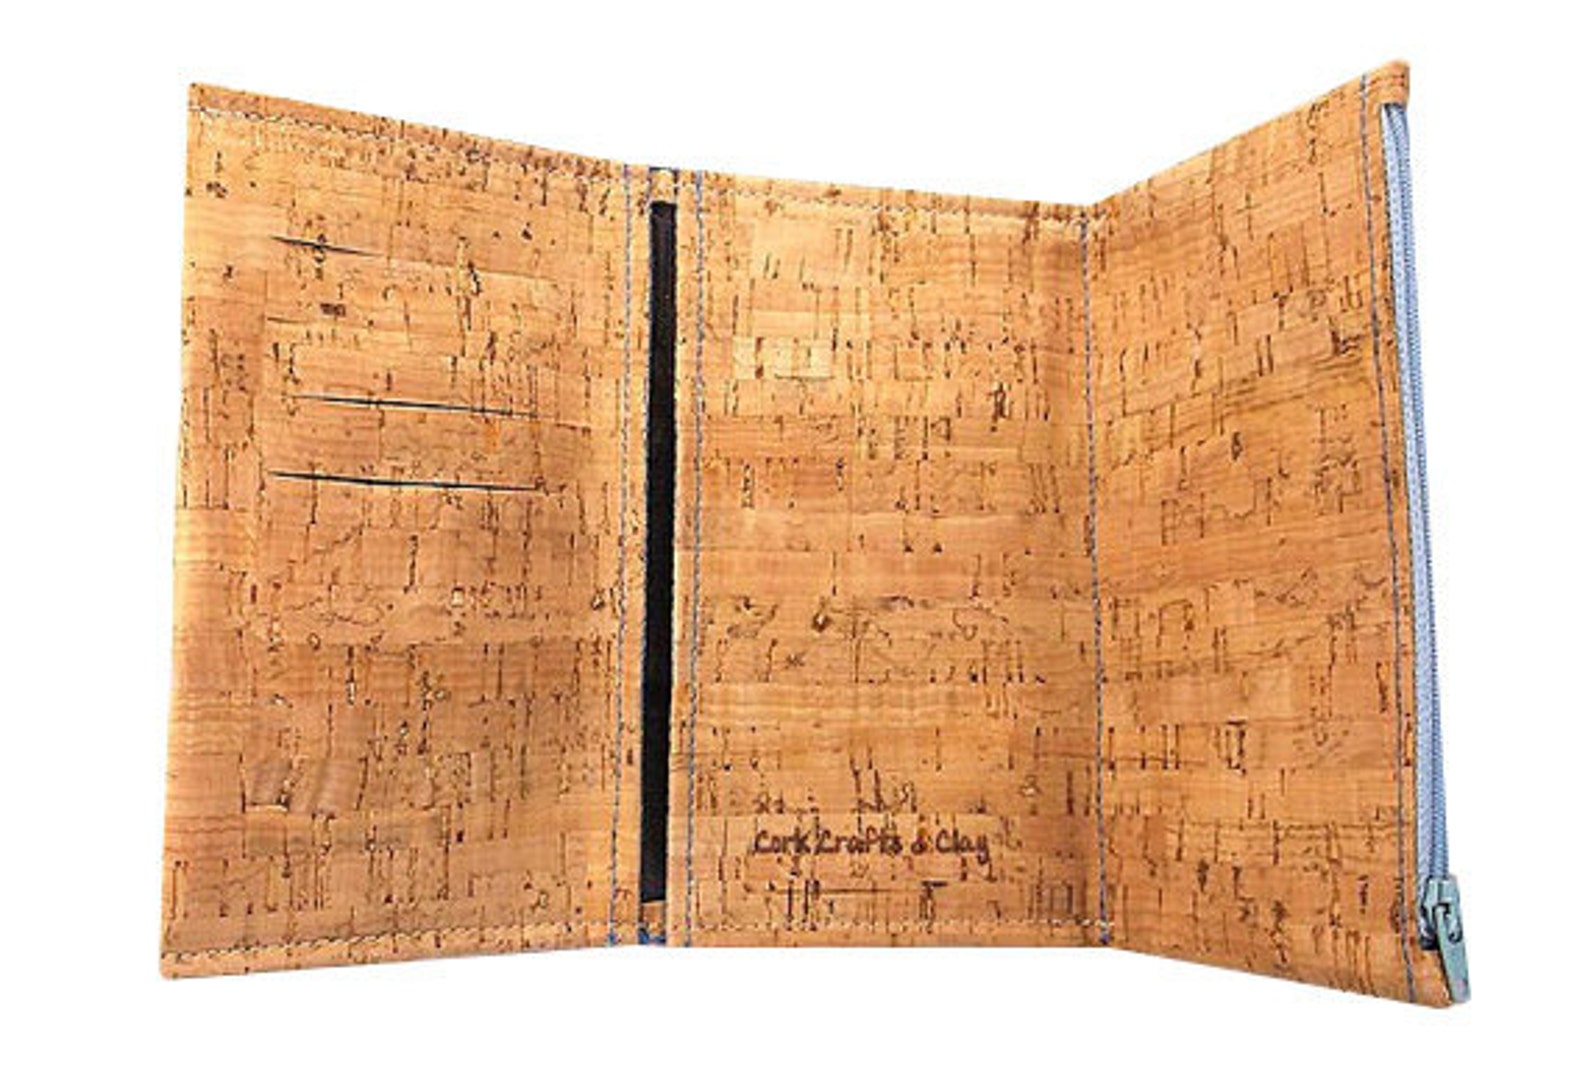 Cork Crafts & Clay